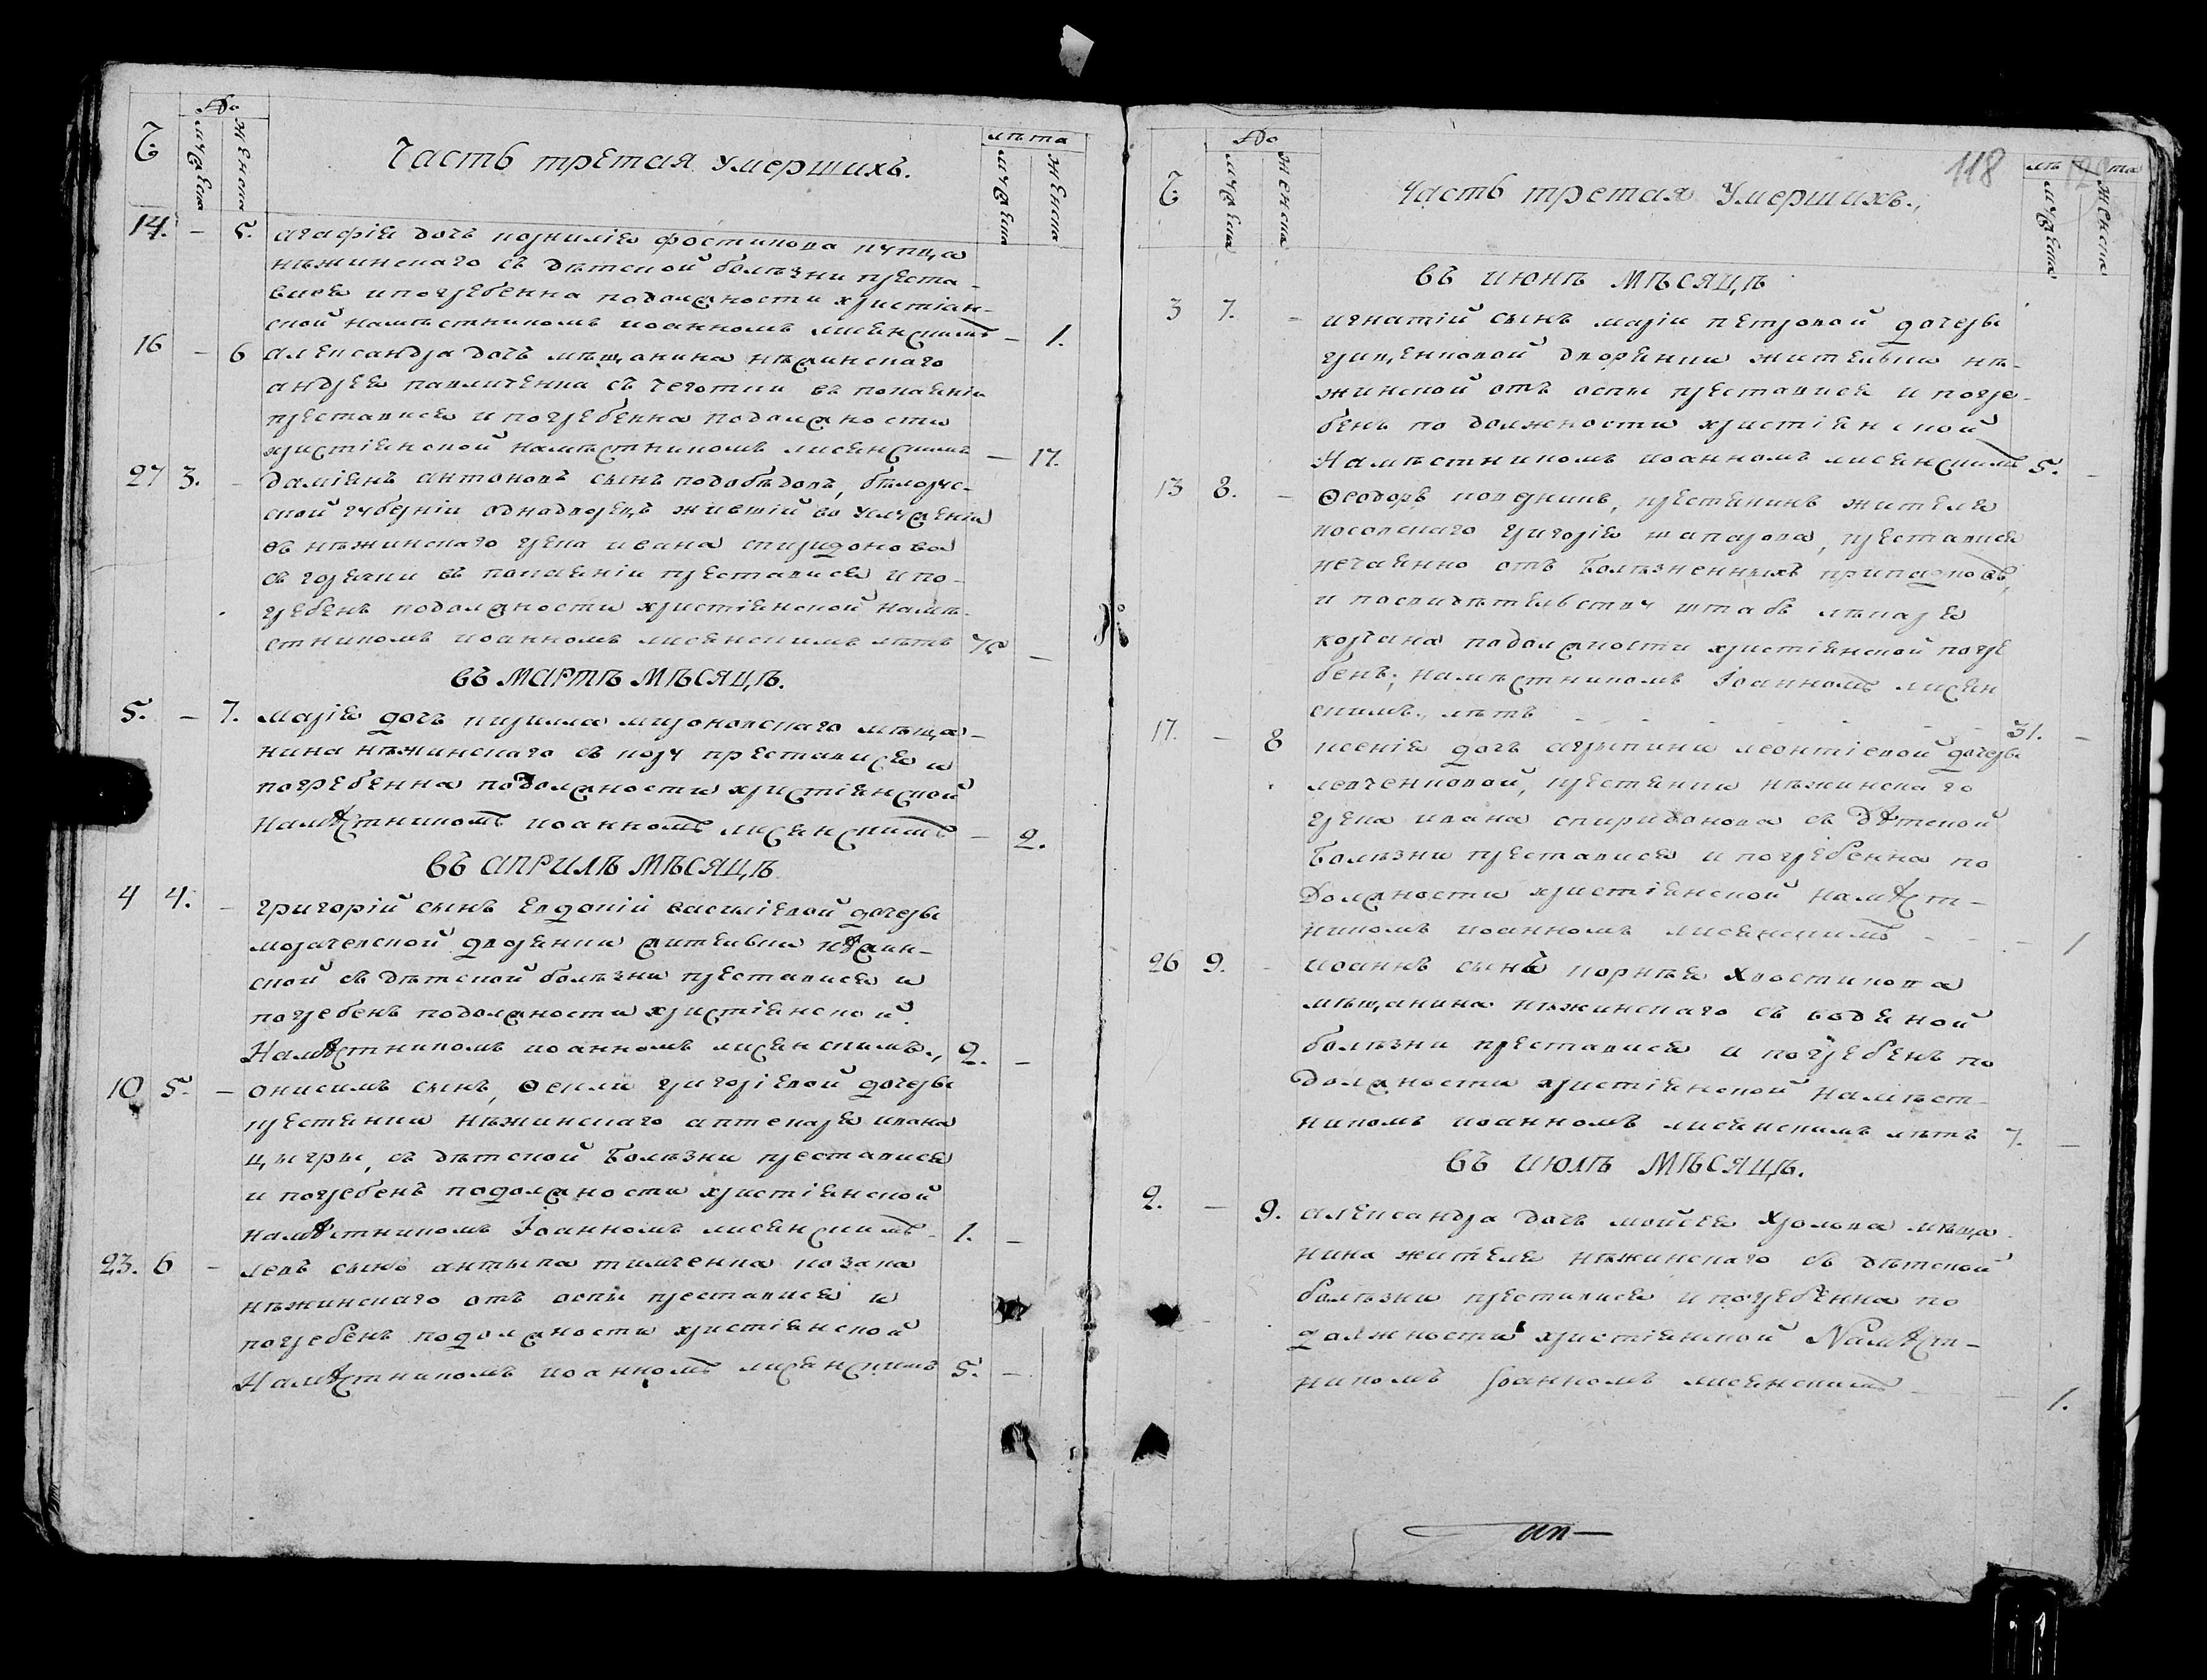 Ч.
До
мужеска
женска
Часть третая умершихъ.
лѣта
мужеска
женска
14. – 5. агафія дочь корнилія фостикова купца
нѣжинскаго съ дѣтской болѣзни преста-
вися и погребенна подолжности христіан-
ской намѣстникомъ иоанномъ лисянскимъ – 1.
16 – 6 александра дочь мѣщанина нѣжинскаго
андрея павличенка съ чеготки въ покаяніи
преставися и погребенна подолжности
христіянской намѣстникомъ лисянскимъ – 17.
27 3. – даміянъ антоновъ сынъ подобѣдовъ, бѣлорус-
ской губерніи однадворецъ жившій во услуженіи
въ нѣжинскаго грека ивана спиридонова
съ горячки въ покаяніи преставися и по-
гребенъ подолжности христіянской намѣ-
стникомъ иоанномъ лисянскимъ лѣтъ –
въ мартѣ мѣсяцѣ.
5. – 7. марія дочь кирилла мироновскаго мѣща-
нина нѣжинскаго съ кору преставися и
погребенна подолжности христіянской
намѣстникомъ иоанномъ лисянскимъ – 2.
въ априлѣ мѣсяцѣ
4 4. – григорій сынъ евдокіи василіевой дочеры
моргачевской дворянки жителки нѣжин-
ской съ дѣтской болѣзни преставися и
погребенъ подолжности христіянской
намѣстникомъ иоанномъ лисянскимъ., 2. –
10 5. – онисимъ сынъ, ѳеклы григоріевой дочеры
крестянки нѣжинскаго аптекаря ивана
цыгры, съ дѣтской болѣзни преставися
и погребенъ подолжности христіянской
намѣстникомъ Іоанномъ лисянскимъ. 1. –
23. 6 – левъ сынъ антыпа тимченка козака
нѣжинскаго отъ оспы преставися и
погребенъ подолжности христіянской
намѣстникомъ иоанномъ лисянскимъ 5. –
Ч.
До
мужеска
женска
Часть третая умершихъ.,
118
лѣта
мужеска
женска
въ июнѣ мѣсяцѣ
3 7. – игнатій сынъ маріи петровой дочеры
грищенковой дворянки жителки нѣ-
жинской отъ оспы преставися и погре-
бенъ по должности христіянской
намѣстникомъ иоанномъ лисянскимъ 5. –
13 8. – ѳеодоръ крестянинъ жителя
григорія шапарова, преставися
нечаянно отъ болѣзненныхъ припадковъ,
и посвидѣтелству штабъ лѣкаря
подолжности христіянской погре
бенъ; намѣстникомъ Іоанномъ лисян
скимъ., лѣтъ – – – – – – 31. –
17. – 8 ксенія дочь агрипини леонтіевой дочеры
левченковой, крестянки нѣжинскаго
грека ивана спиридонова съ дѣтской
болѣзни преставися и погребенна по
должности христіянской намѣст-
никомъ иоанномъ лисянскимъ – – – 1
26 9. – иоаннъ сынъ корнѣя хвостикова
мѣщанина нѣжинскаго съ водяной
болѣзни преставися и погребенъ по
должности христіянской намѣст-
никомъ иоанномъ лисянскимъ лѣтъ 7. –
въ июлѣ мѣсяцѣ.
2. – 9. александра дочь мойсея хролова мѣща
нина жителя нѣжинскаго съ дѣтской
болѣзни преставися и погребенна по
должности христіянской намѣст-
никомъ Іоанномъ лисянскимъ – 1.